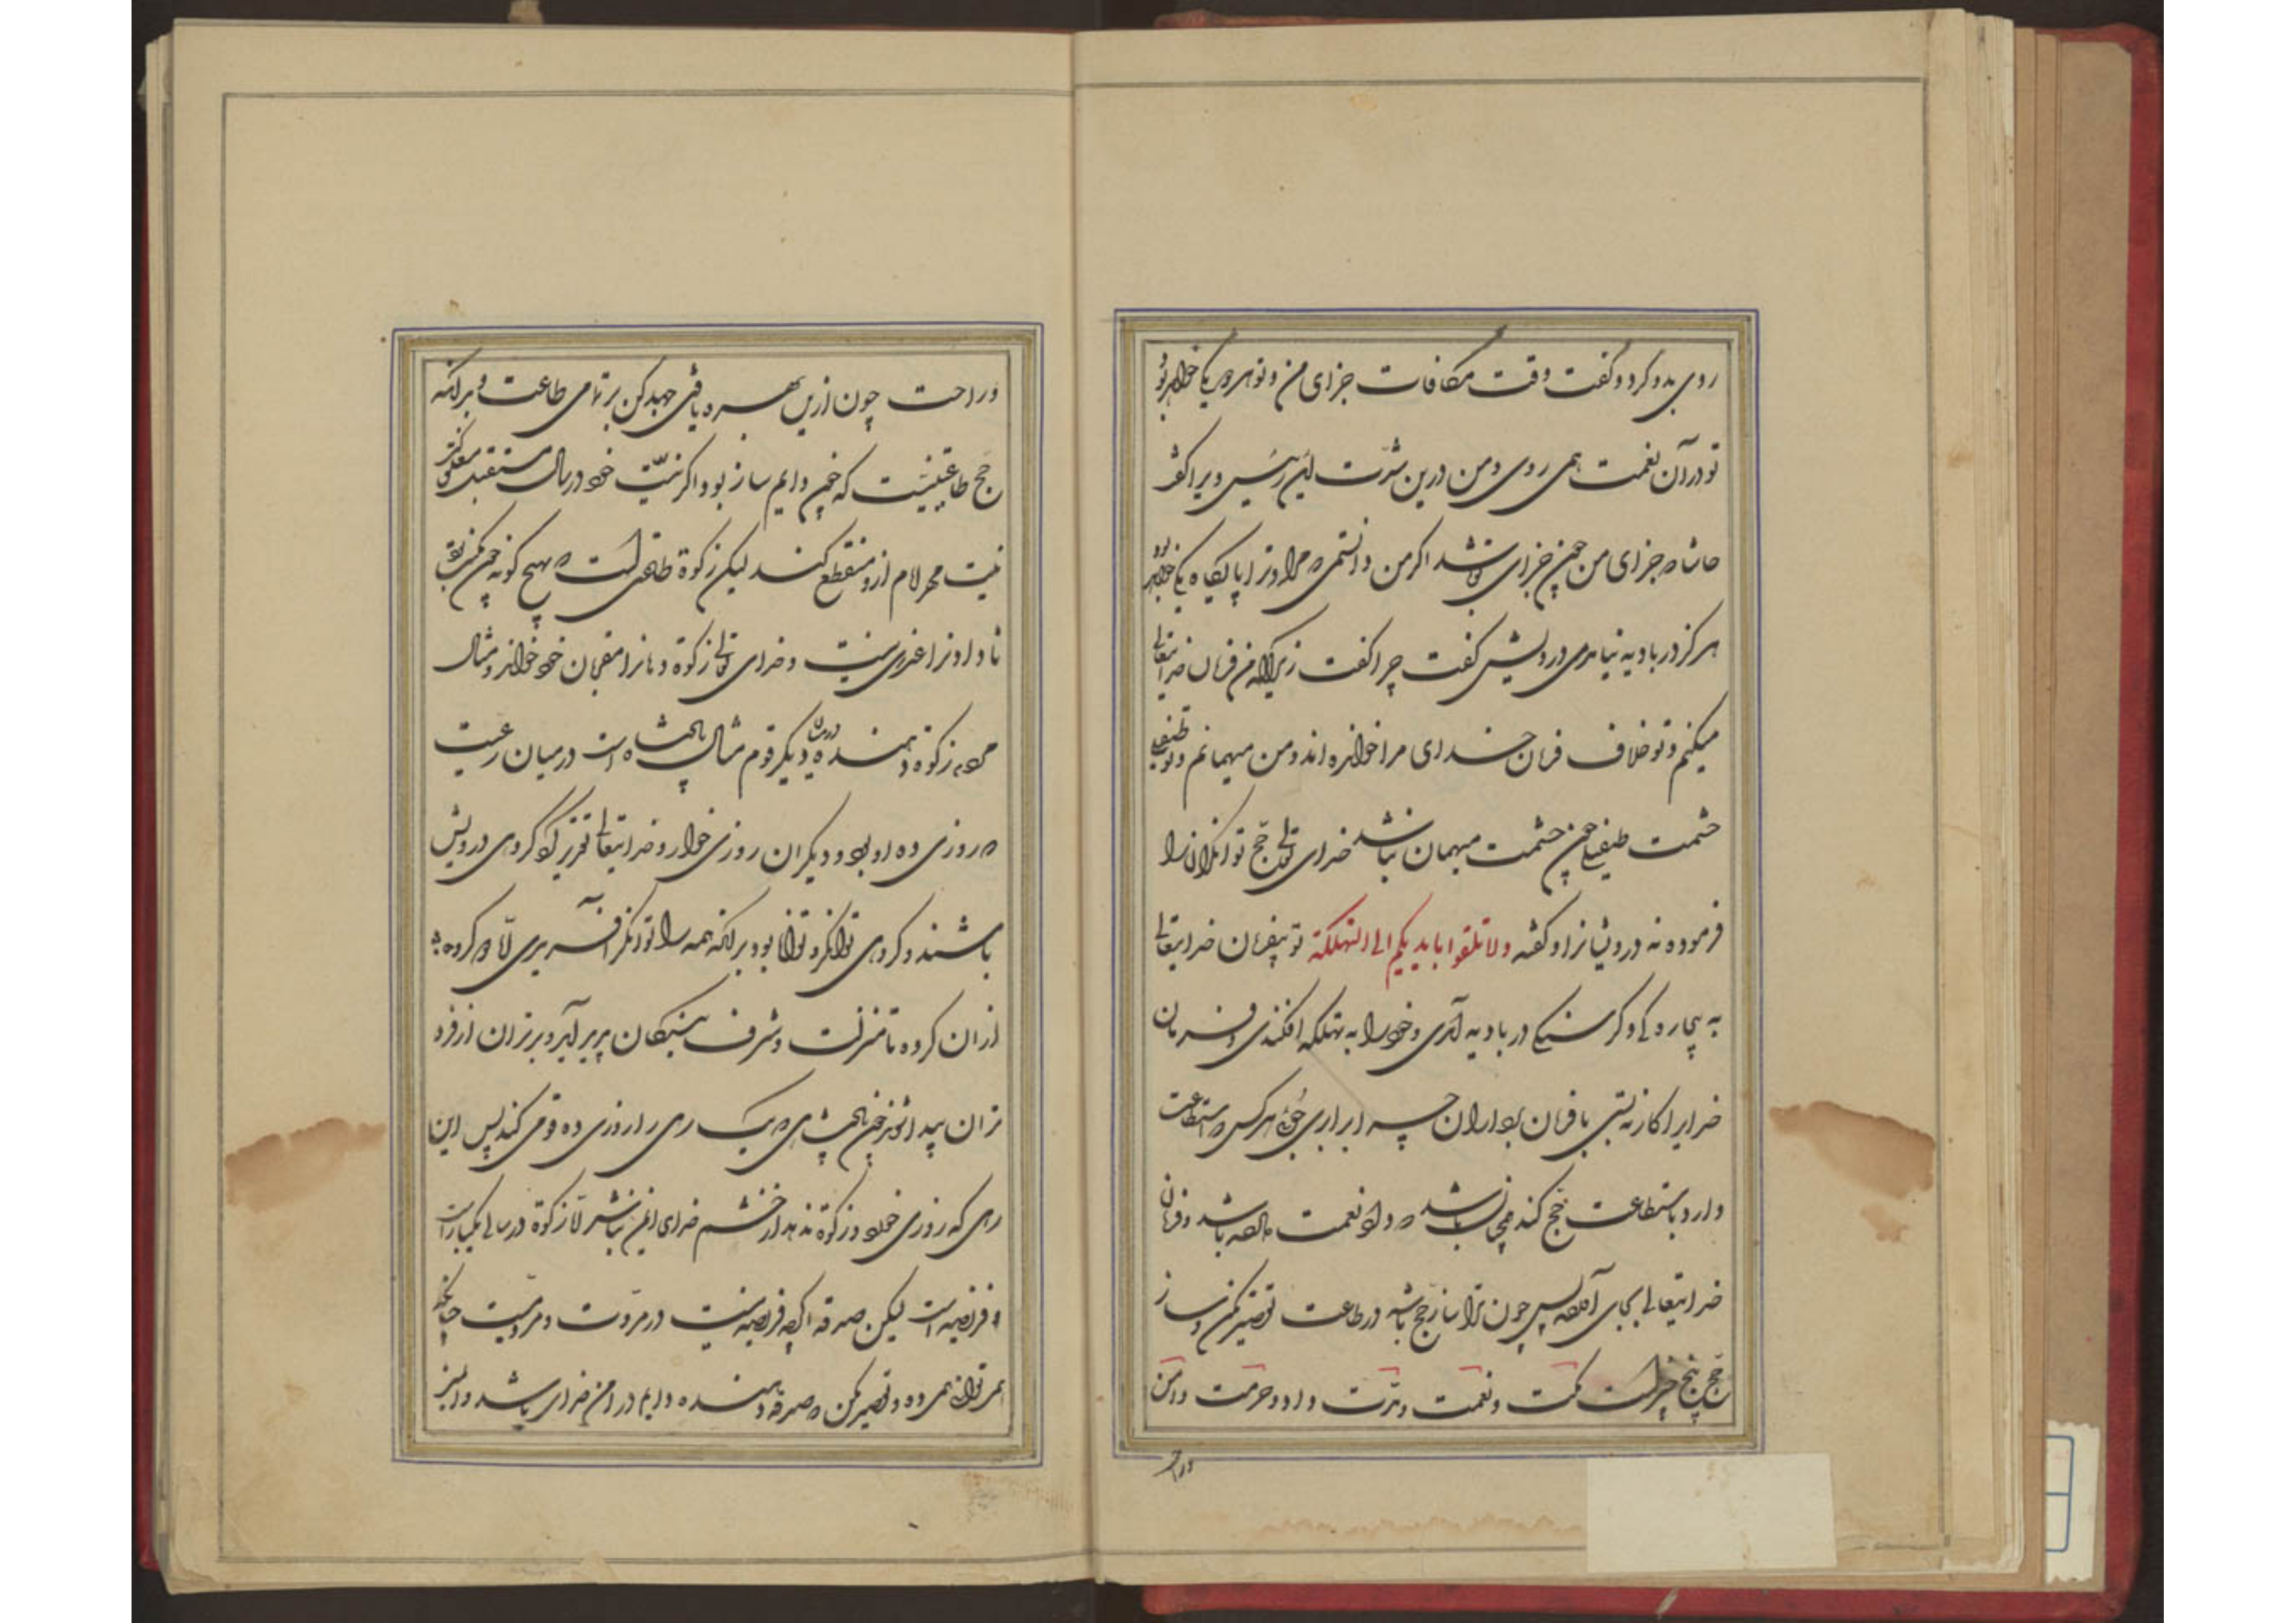 روی بدو کرد و گفت وقت مکافات جزای من و تو هر دو یکی خواهد بود
تو در آن نعمت همی روی و من درین شدت این رئیس ویرا گفت
حاشا که جزای من چون جزای تو باشد اگر من دانستمی که مرا و ترا پایگاه یکی خواهد بود
هرگز در بادیه نیامدمی درویش گفت چرا گفت زیرا که من فرمان خدایتعالی
میکنم و تو خلاف فرمان خدای مرا خوانده اند و من میهمانم و تو طفیلی
حشمت طفیلی چون حشمت میهمان نباشد خدای تعالی حج توانگران را
فرموده نه درویشانرا و گفته ولا تلقوا بایدیکم الی التهلکة تو بیفرمان خدایتعالی
به بیچارگی و گرسنگی در بادیه آمدی و خود را به تهلکه افکندی و فرمان
خدایرا کار نبستی با فرمان برداران چه برابری جوئی هر کس که استطاعت
دارد باستطاعت حج کند چنان باشد که داد نعمت داده باشد و فرمان
خدایتعالی بجای آورده پس چون ترا ساز حج باشد در طاعت تقصیر مکن و ساز
حج پنج چیز است مکنت و نعمت و مدت و داد و حرمت و امن
و راحت
و راحت چون ازین بهره یافتی جهد کن بر تمامی طاعت و بدانکه
حج طاعتیست که چون دایم ساز بود اگر نیت خود در سال مستقبل معلق کنی
نیت محرم لام ازو منقطع کند لیکن زکوة طاعتی است که بهیچ گونه چون ممکن بود
نادادن را عذری نیست و خدای تعالی زکوة دهانرا مقربان خود خوانده و مثال
مردم زکوة دهنده در میان دیگر قوم مثال پادشاه است در میان رعیت
که روزی ده او بود و دیگران روزی خوار و خدایتعالی تقدیر کرد که گروهی درویش
باشند و گروهی توانگر و توانا بود بدانکه همه را توانگر آفریدی لا که گروه
ازان کرده تا منزلت و شرف بندگان پدید آید و برتران از فرو
تران پیدا شوند چون پادشاهی که یک رهی را روزی ده قومی کند پس این
رهی که روزی خورد و زکوة ندهد از خشم خدای ایمن نباشد لا زکوة در سالی یکبار است
و فریضه است لیکن صدقه اگرچه فریضه نیست در مروت و مردمیست چنانکه
همی توانی همی ده و تقصیر مکن که صدقه دهنده دایم در امن خدای باشد و ایمنی